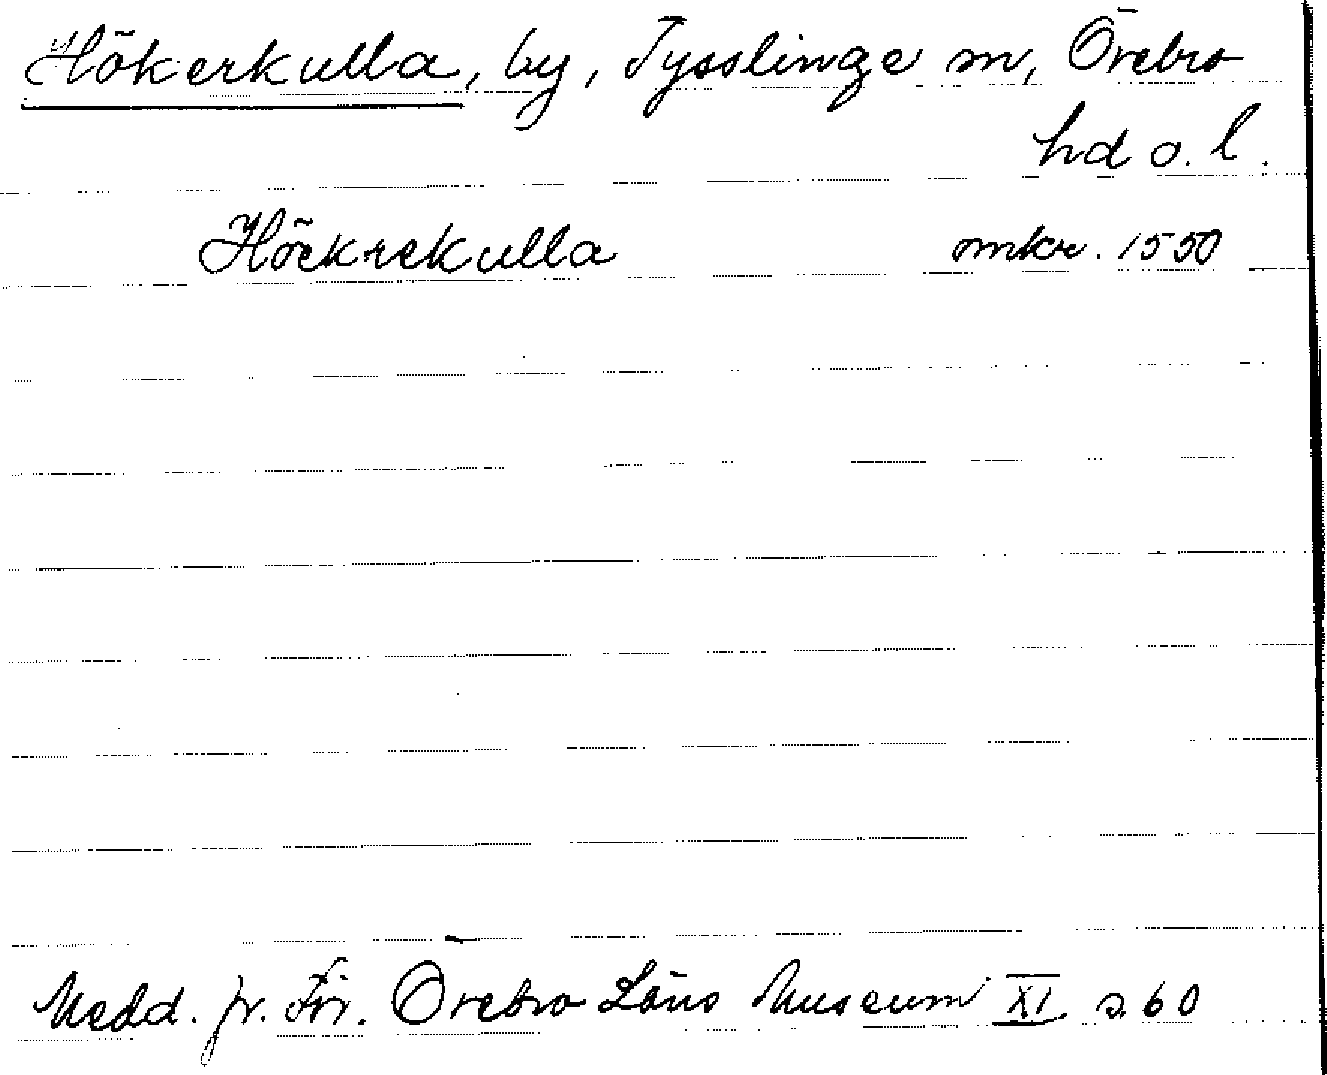 Hökerkulla, by, Tysslinge sn, Örebro
hd o. l.
Höckrekulla omkr. 1550
Medd. fr. För. Örebro Läns Museum XI s. 60